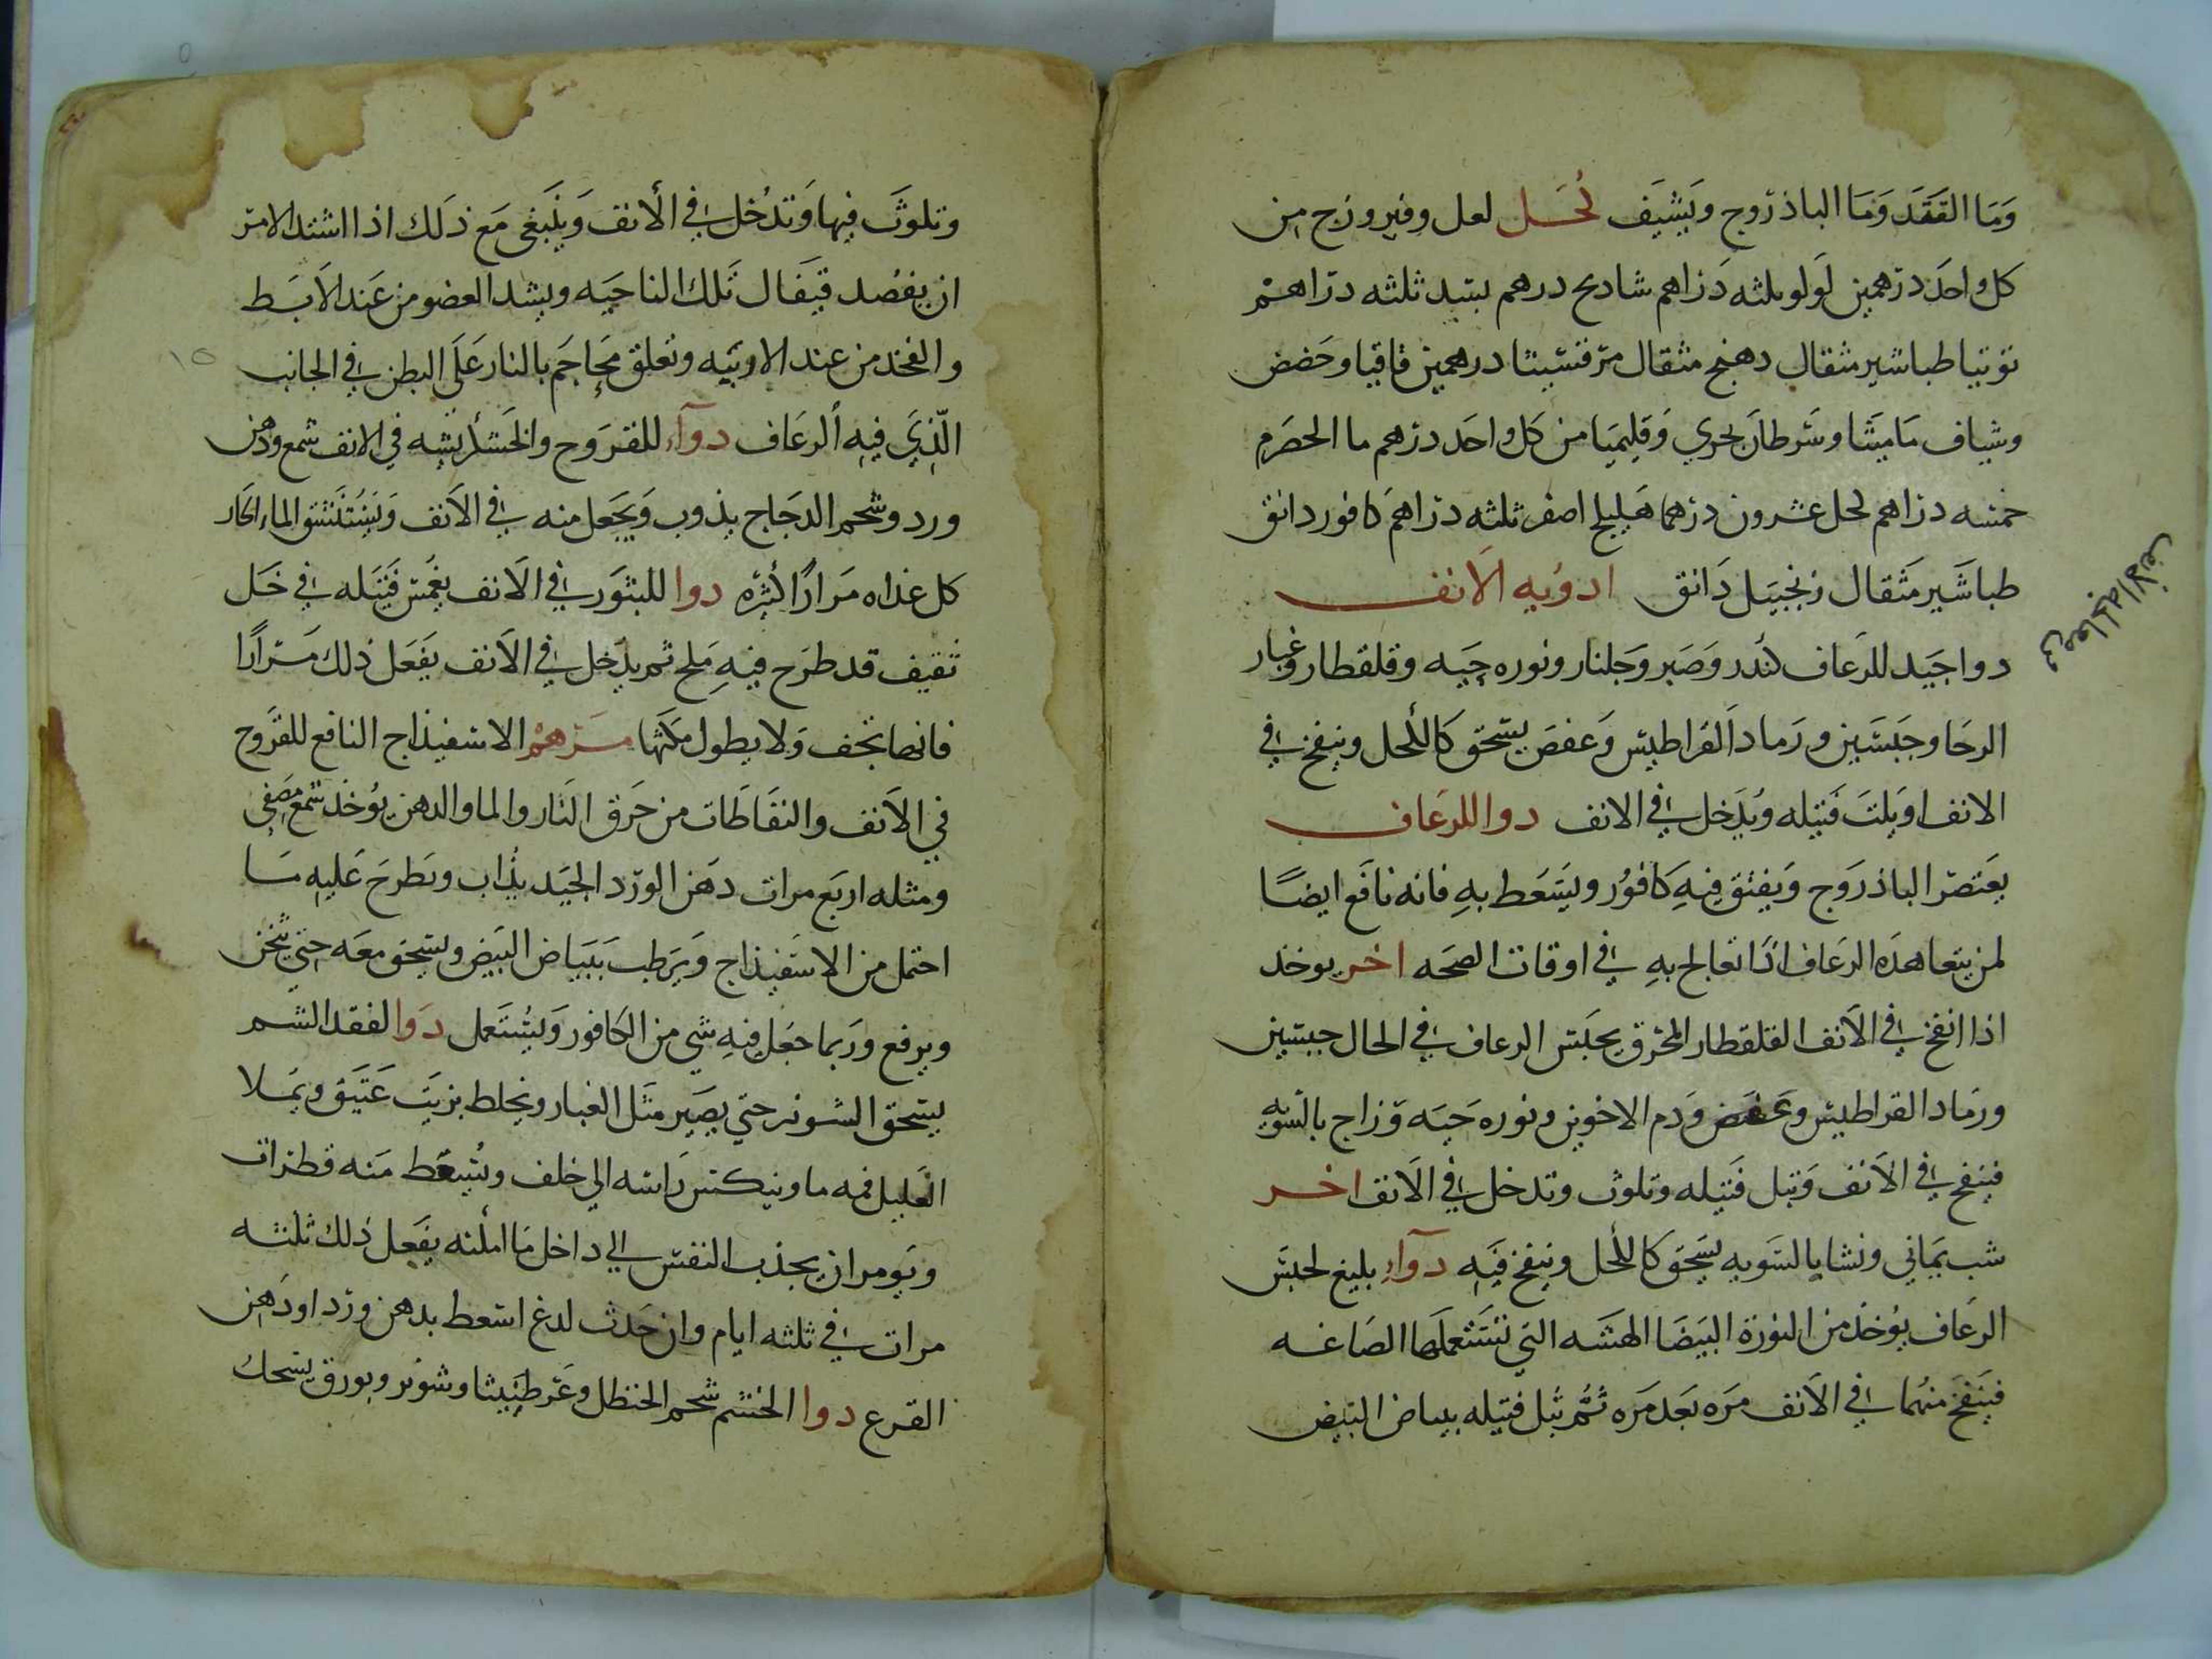 وَمَا الفَقَدَ وَمَا الباذروج وَيشيَف كُحَل لعل وفيروزج من
كل واحَد درهمين لَولو ثلثه دَراهم شادنج درهم بسد ثلثه دراهم
توتيا طباشير مثقال دهنج مثقال مرقشيثا درهمين قاقيا وحَضض
وشياف مَاميثَا وسَرطاَن بحري وَقليميَا من كل واحَد درهم ما الحصرم
خمسه دراهم كحل عشرون درهما هَليلج اصفر ثلثه دراهم كافور دانق
طباشَير مثَقال زنجبيَل دَانق ادوُيه الاَنف
دوا جَيد للرعَاف كندر وَصَبر وَجلنار ونوره حيَه وقلقطار وغبار
الرحَا وجَبسَين ورَماد القراطيس وَعفصَ يسَحق كَالكحل وينفخ في
الانف او يَلت فَتيله وَيدَخل في الانف دوا للرعَاف
يعَتصر الباذروَج وَيفتق فيهِ كَافوُر ويسَعَط بهِ فانه نافَع ايضًا
لمن يتعاهدَه الرعَاف اذَا تعَالج بهِ في اوقات الصحَه اخر يوخذ
اذا انفخ في الاَنف القلقطار المحرق يحبَس الرعاف في الحال جبسين
ورمَاد القراطيس وعَفص وَدم الاخوين ونوره حَيَه وَزاج بالسويه
فينفخ في الاَنف وَتبل فَتيله وتلوث وتدخل في الاَنف اخر
شب يمَاني ونشا بالسَويه يسَحق كالكُحل وينفخ فيَه دوآءٌ بليغ لحبَس
الرعَاف يوُخذ من النورة البيَضَا الهشَه التي تسَتعملَها الصَاغه
فينَفخَ منهُما في الاَنف مَرَه بعَد مَره ثُمَّ تبُل فتيله ببياض البَيض
في معالجة الانف
وتلوثَ فيها وَتدُخل في الأنف وَينَبغي مَع ذلَك اذا اشتد الامر
ان يفصُد قيفَال تَلك الناحيَه ويشد العضو من عَند الاَبَط
والفخذ من عند الاربَيه وتعلق مَحاجَم بالنار عَلَى البطن في الجانب
الَّذِيَ فيهِ الرعَاف دوآء للقروَح والخشَكريشه في الانف شمع ودهن
ورد وشحم الدجَاج يذوب وَيجَعل منه في الاَنف وَيسُتَنشق الماء الحَار
كل غداه مرَارًا كثيَره دوا للبثوَر في الاَنف يغمُس فَتيَله في خَل
ثقيف قد طرَح فيهِ مَلح ثم يدَخل في الاَنف يفَعَل ذلك مَرارًا
فانها تجَف وَلا يطول مكَثها مرَهم الاسفيذاج النافع للقرَوح
في الاَنف والنفَاطَات من حَرق النَار والما والدهن يوُخذ شمع مصَفي
ومثله اربَع مرات دهَن الورد الجيَد يذُاب ويَطرحَ عَليه مَا
احتمل من الاسَفيذاج وَيرَطب بَبيَاض البَيض ويسَحق معَه حتي يثخن
ويرفع ورَبما جعَل فيهِ شي من الكافور وَيسُتَعمل دوَا لفقد الشم
يسَحق الشونيز حتي يصَير مثَل الغبار ويخلط بزيَت عَتيَق ويمَلا
العَليل فمه ما وينكس رَاسه الي خلف ويُسعَط مَنه قطرات
ويَومر ان يجذب النفس الي داخل مَا امكنه يفَعل ذلك ثلثه
مرات في ثلثه ايام وان حَدث لدغ اسعط بدهن ورد او دَهن
القرع دوا الخشم شحم الحنظل وعَرطنيثا وشونيز وبورق يسحك
١٥